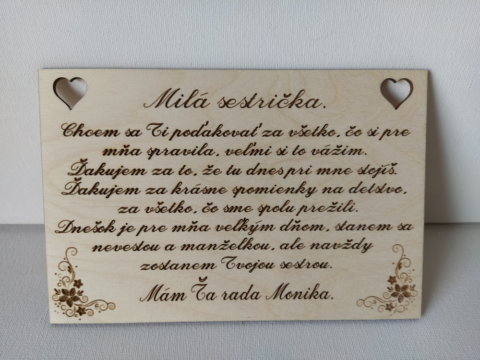 Milá sestrička.
Chcem sa Ti poďakovať za všetko, čo si pre
mňa spravila, veľmi si to vážim.
Ďakujem za to, že tu dnes pri mne stojíš.
Ďakujem za krásne spomienky na detstvo,
za všetko, čo sme spolu prežili.
Dnešok je pre mňa veľkým dňom, stanem sa
nevestou a manželkou, ale navždy
zostanem Tvojou sestrou.
Mám Ťa rada Monika.